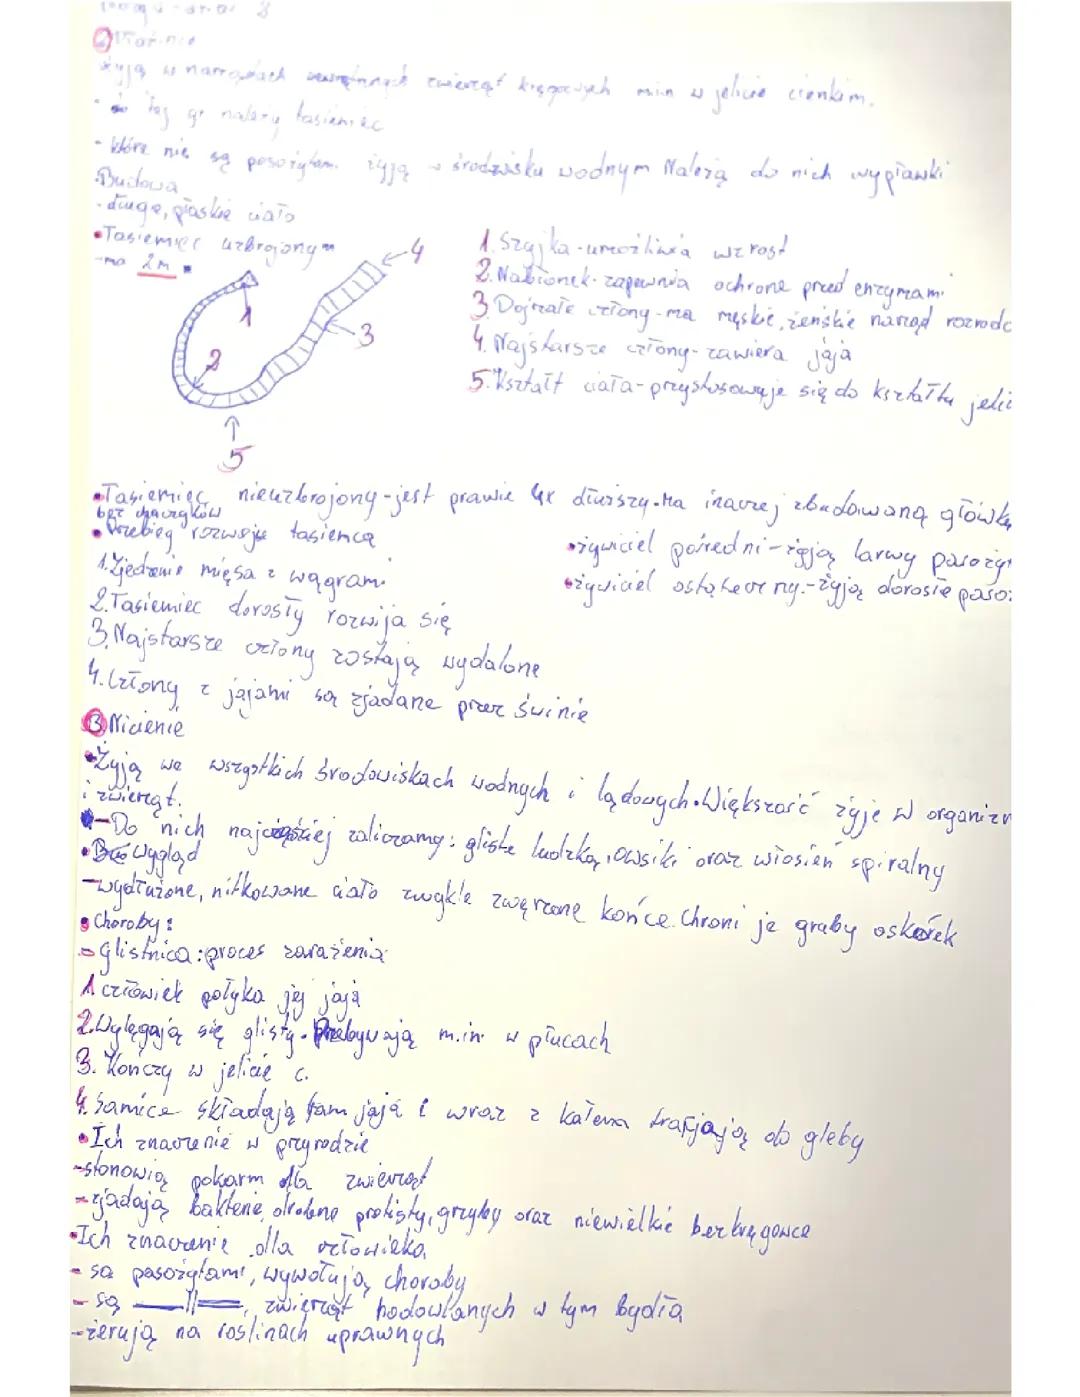 ② Płazińce
żyją w narządach wewnętrznych zwierząt kręgowych min w jelicie cienkim.
- do tej gr należy tasiemiec
- które nie są pasożytami żyją w środwisku wodnym Należą do nich wypławki
Budowa
- długe, płaskie ciało
• Tasiemiec uzbrojony
- ma 2m
4
1
3
2
5
1. Szyjka - umożliwia wzrost
2. Nabłonek - zapewnia ochrone przed enzymami
3. Dojrzałe człony - ma męskie, żeńskie narząd rozrodc
4. Najstarsze człony - zawiera jaja
5. Kształt ciała - przystosowuje się do kształtu jelic
• Tasiemiec nieuzbrojony - jest prawie 4x dłuższy. Ma inaczej zbudowaną główkę
bez haczyków
• Przebieg rozwoju tasiemca
1. Zjedzenie mięsa z wągrami
2. Tasiemiec dorosły rozwija się
3. Najstarsze człony zostają wydalone
4. Człony z jajami są zjadane przez świnie
• żywiciel pośredni - żyją larwy pasoży
• żywiciel ostateczny - żyją dorosłe paso
③ Nicienie
• Żyją we wszystkich środowiskach wodnych i lądowych. Większość żyje w organizm
i zwierząt.
- Do nich najczęściej zaliczamy: glistę ludzką, owsiki oraz włosień spiralny
• Wygląd
- wydłużone, nitkowane ciało zwykle zwężone końce. Chroni je gruby oskórek
• Choroby:
- Glistnica: proces zarażenia
1. człowiek połyka jej jaja
2. Wylęgają się glisty. Przebywają m.in. w płucach
3. Kończy w jelicie c.
4. Samice składają tam jaja i wraz z kałem trafjają do gleby
• Ich znaczenie w przyrodzie
- stanowią pokarm dla zwierząt
- zjadają bakterie, drobne protisty, grzyby oraz niewielkie bezkręgowce
• Ich znaczenie dla człowieka
- są pasożytami, wywołują choroby
- są —||—, zwierząt hodowlanych w tym bydła
- żerują na roślinach uprawnych